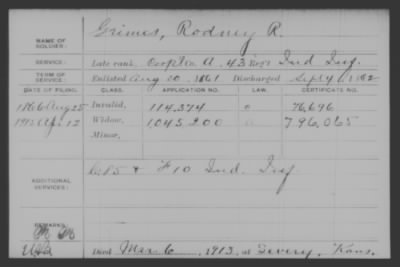 NAME OF SOLDIER: Grimes, Rodney R.
SERVICE: Late rank, Corp Co. A, 43 Reg't Ind Inf.
TERM OF SERVICE: Enlisted Aug 20, 1861 Discharged Sept 4, 1862
DATE OF FILING. CLASS. APPLICATION NO. LAW. CERTIFICATE NO.
1866 Aug 25 Invalid, 114,374 76,696
Apr 12 Widow, 1,045,200 796,065
Minor,
ADDITIONAL SERVICES: & F 10 Ind. Inf
REMARKS:
Died Mar 6, 1913, at Severy, Kans.